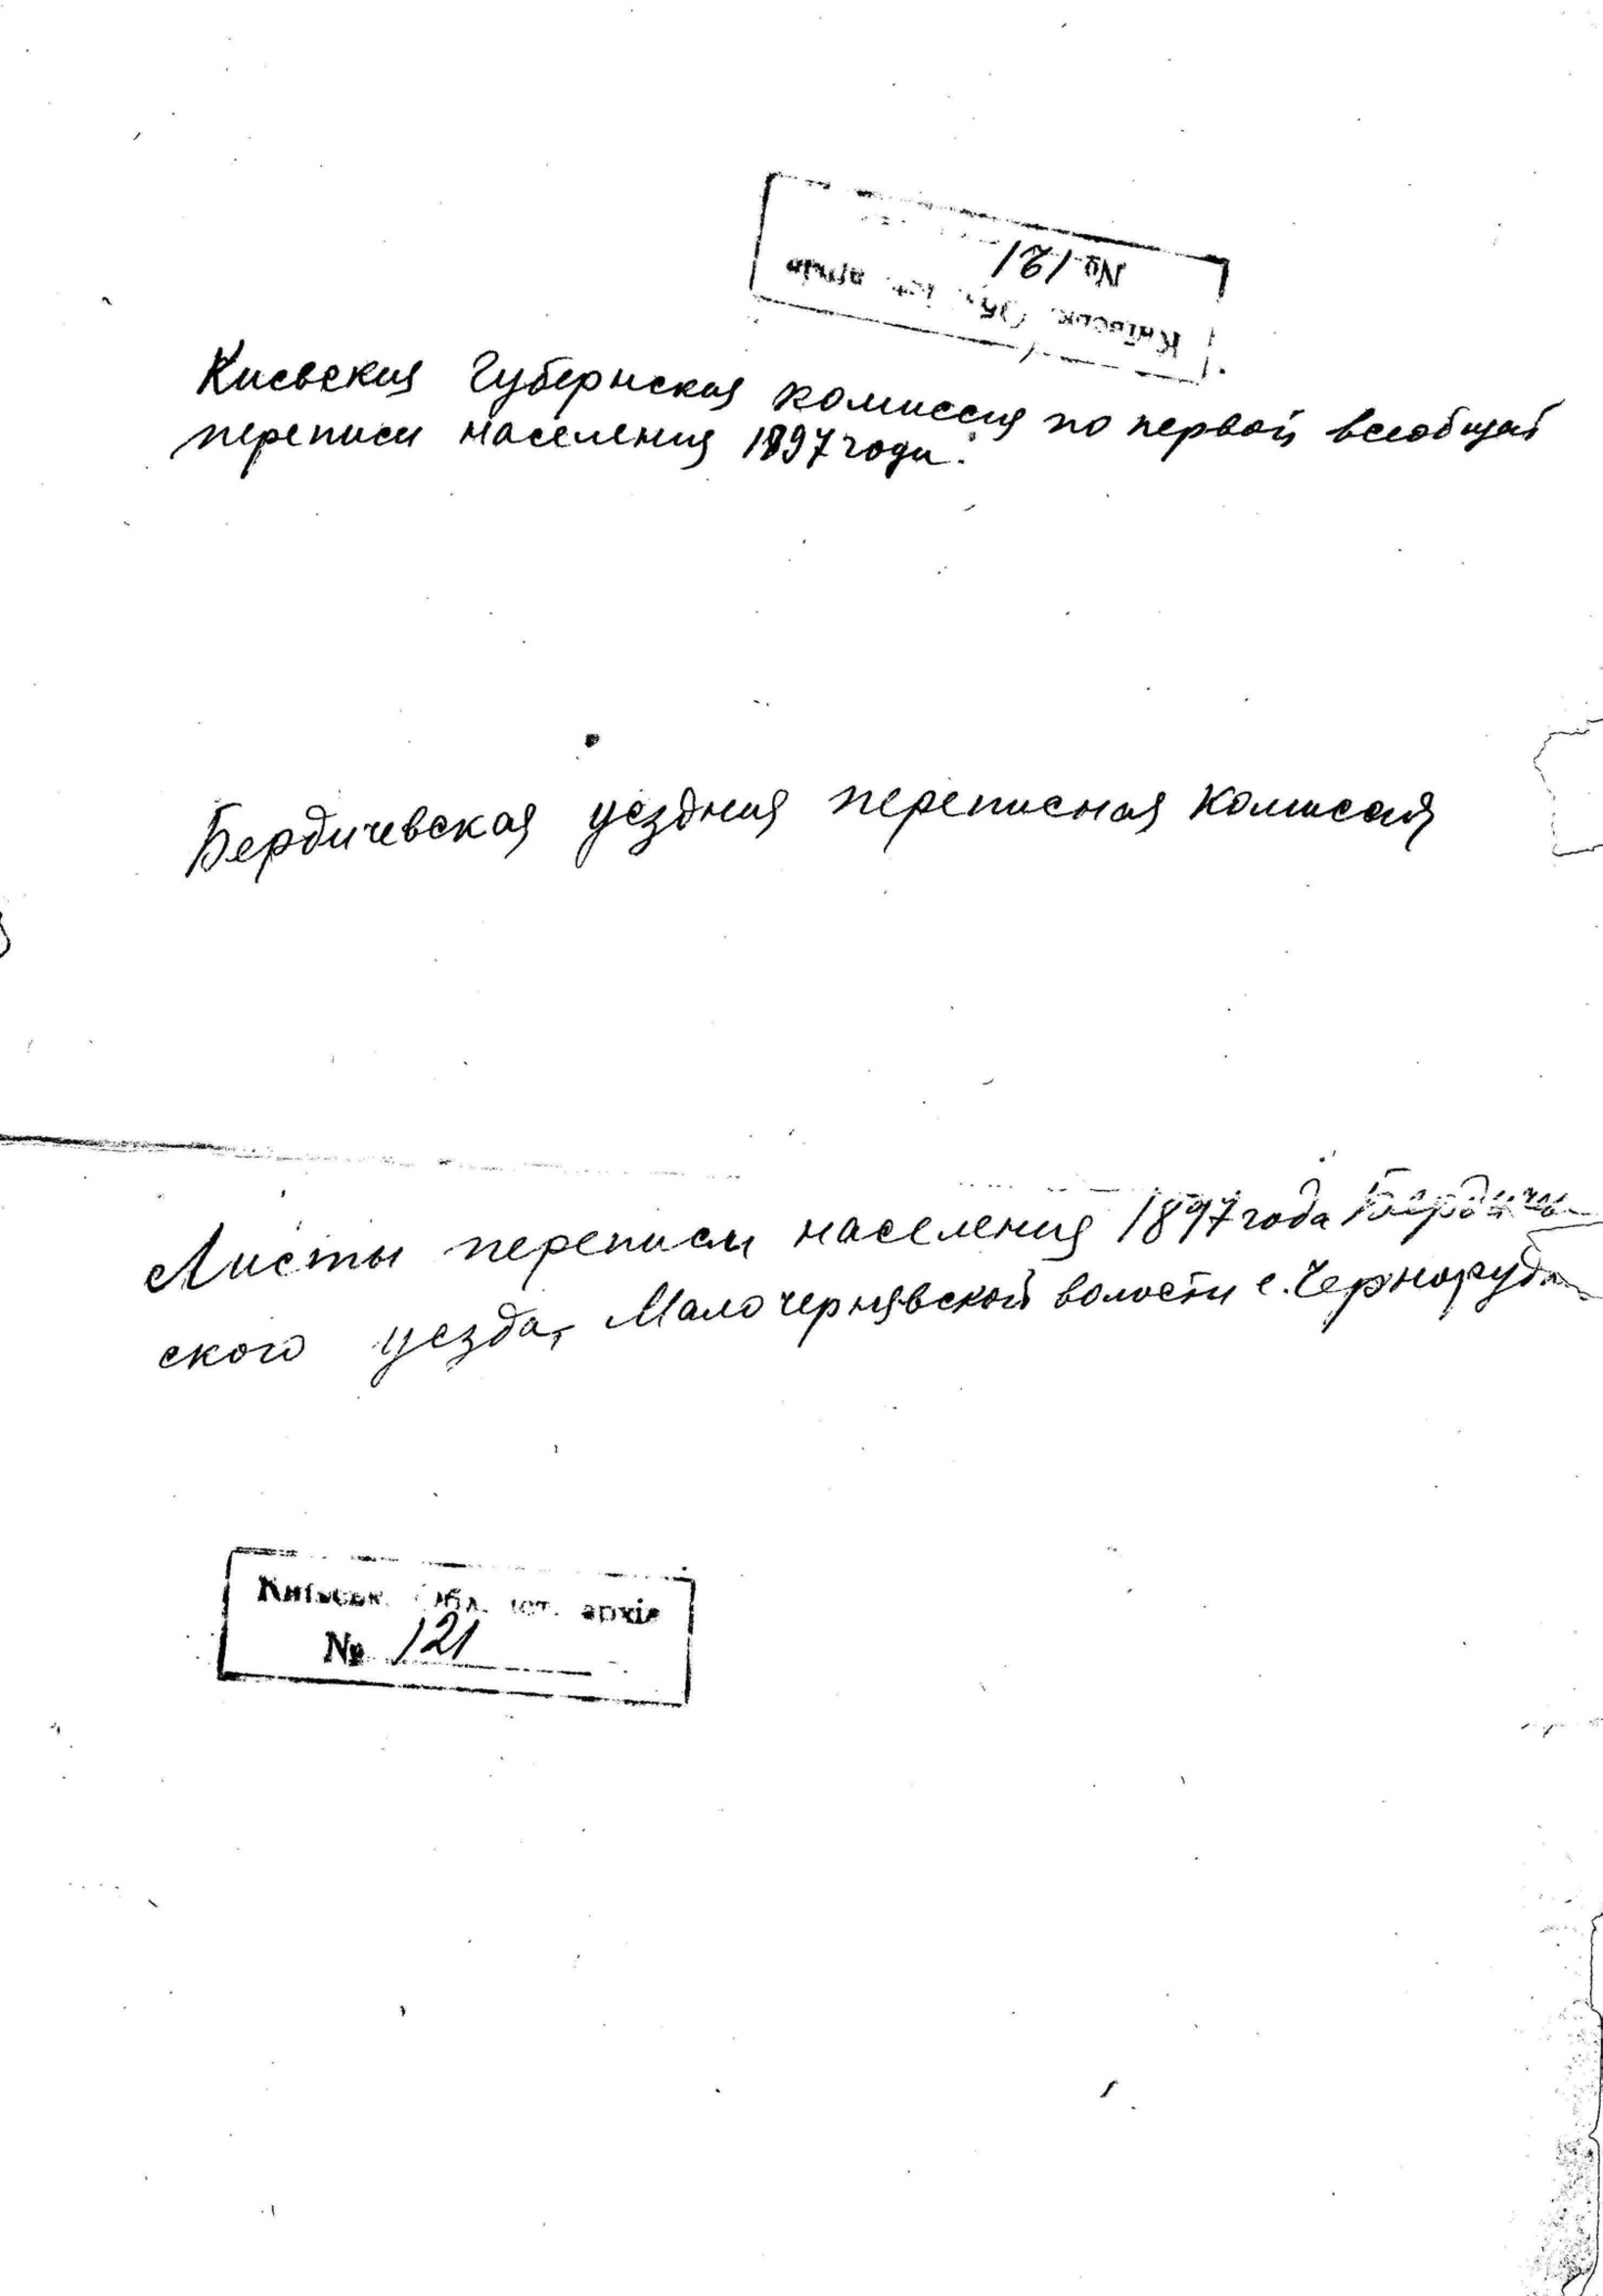 № 121
Київськ. Обл. іст. архів
Киевская Губернская комиссия по первой всеобщей
переписи населения 1897 года.
Бердичевская уездная переписная комиссия
Листы переписи населения 1897 года Бердичев
ского уезда, Малочернявской волости с. Чернорудка
Київськ. Обл. іст. архів
№ 121